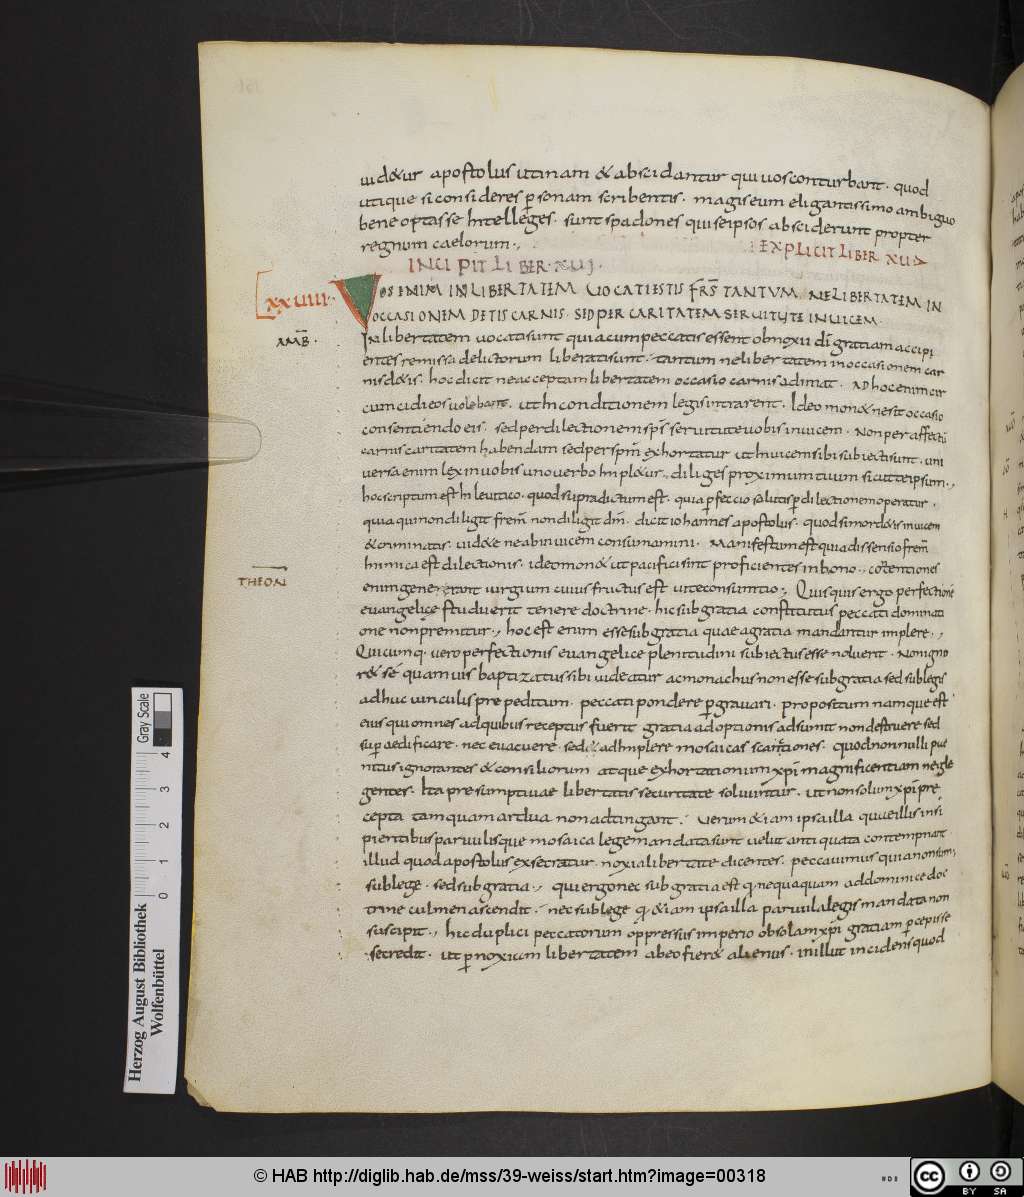 uid&ur apostolus utinam & abscidantur qui uos conturbant. quod
utique si consideres psenam scribentis. magis eum eligantissimo ambiguo
bene optasse Intelleges. sunt spadones qui seipsos absciderunt propter
regnum caelorum.,
EXPLICIT LIBER XII
INCIPIT LIBER XIIJ.
LXXVIIII.
VOS ENIM IN LIBERTATEM VOCATI ESTIS FRS TANTVM NE LIBERTATEM IN
OCCASIONEM DETIS CARNIS. SED PER CARITATEM SERVITVTE INVICEM.
AMB.
IN libertatem uocati sunt qui a cum peccatis essent obnoxii di gratiam accipi
entes remissa delictorum liberati sunt. tantum ne libertatem in occasionem car
nis d&is. hoc dicit ne acceptam libertatem occasio carnis adimat. AD hoc enim cir
cumcidi eos uolebant. ut In conditionem legis intrarent. Ideo mon& ne sit occasio
consentiendo eis. sed per dilectionem sps seruitute uobis inuicem. Non per affectu
carnis caritatem habendam sed per spm exhortatur ut Inuicem sibi subiecti sunt. uni
uersa enim lex in uobis uno uerbo Impl&ur. diliges proximum tuum sicut teipsum.,
hoc scriptum est In leuitico. quod supradictum est. quia pfeccio salutis p dilectionem operatur.
quia qui non diligit frem non diligit dm. dicit iohannes apostolus. quod si mord&is inuicem
& criminatis. uid&e ne ab inuicem consumamini. Manifestum est quia dissensio frem
Inimica est dilectionis. ideo mon& ut pacifici sint proficientes in bono., contentiones
THEON
enim generant iurgium cuius fructus est uitae consumtio., Quisquis ergo perfectione
euangelice studuerit tenere doctrine. hic sub gratia constitutus peccati dominati
one non premitur., hoc est enim esse sub gratia quae a gratia mandantur implere.,
Quicumq. uero perfectionis euangelice plenitudini subiectus esse noluerit. Non igno
r& se quamuis baptizatus sibi uideatur ac monachus non esse sub gratia sed sub legis
adhuc uinculis prepeditum. peccati pondere pgrauari. propositum namque est
eius qui omnes ad quibus receptus fuerit gratia adoptionis adsumit non destruere sed
supaedificare. nec euacuere. sed adImplere mosaicas sanctiones. quod nonnulli pue
nitus ignorantes & consiliorum atque exhortationum xpi magnificentiam neigle
gentes. Ita presumptiuae libertatis securitate soluuntur. ut non solum xpi pre
cepta tamquam ardua non adtingant. Uerum &iam ipsa illa que illis insi
pientibus paruulisque mosaica lege mandata sunt uelut antiquata contempnant
illud quod apostolus exsecratur. noxia libertate dicentes. peccauimus quia non sum;
sub lege. sed sub gratia., qui ergo nec sub gratia est q nequaquam ad dominice doc
trine culmen ascendit. nec sub lege q &iam ipsa illa paruula legis mandata non
suscipit., hic duplici peccatorum oppressus imperio ob solam xpi gratiam pcepisse
se credit. ut p noxium libertatem ab eo fier& alienus. in illut incidens quod
Herzog August Bibliothek
Wolfenbüttel
Gray Scale
0 1 2 3 4
© HAB http://diglib.hab.de/mss/39-weiss/start.htm?image=00318
cc BY SA